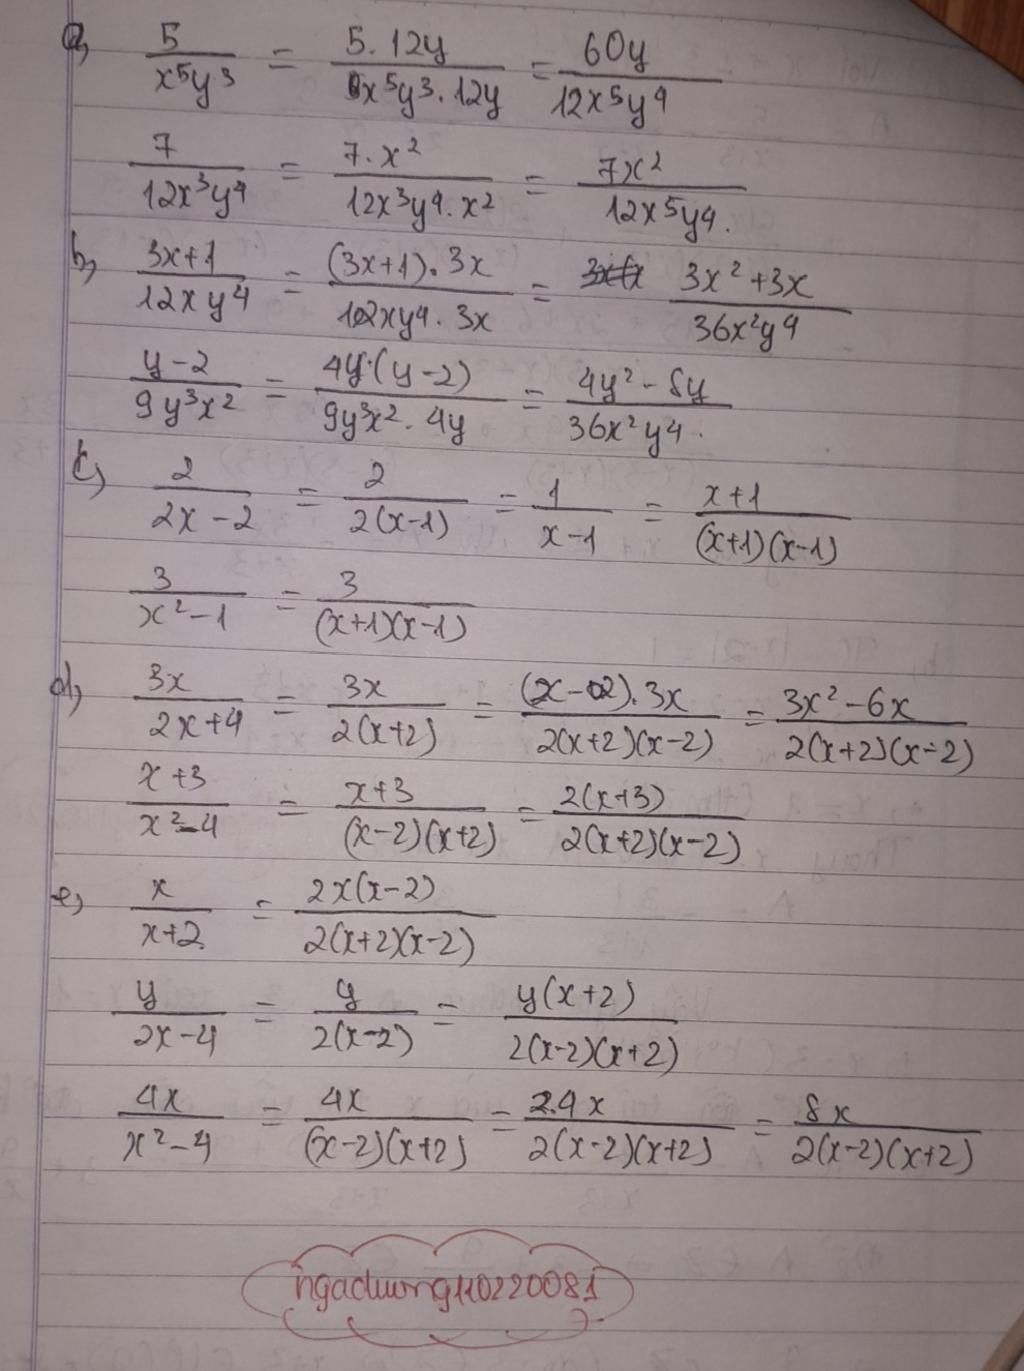 a, 5/x⁵y³ = 5.12y/x⁵y³.12y = 60y/12x⁵y⁴
7/12x³y⁴ = 7.x²/12x³y⁴.x² = 7x²/12x⁵y⁴.
b, 3x+1/12xy⁴ = (3x+1).3x/12xy⁴.3x = 3x²+3x/36x²y⁴
y-2/9y³x² = 4y.(y-2)/9y³x².4y = 4y²-8y/36x²y⁴.
c, 2/2x-2 = 2/2(x-1) = 1/x-1 = x+1/(x+1)(x-1)
3/x²-1 = 3/(x+1)(x-1)
d, 3x/2x+4 = 3x/2(x+2) = (x-2).3x/2(x+2)(x-2) = 3x²-6x/2(x+2)(x-2)
x+3/x²-4 = x+3/(x-2)(x+2) = 2(x+3)/2(x+2)(x-2)
e, x/x+2 = 2x(x-2)/2(x+2)(x-2)
y/2x-4 = y/2(x-2) = y(x+2)/2(x-2)(x+2)
4x/x²-4 = 4x/(x-2)(x+2) = 2.4x/2(x-2)(x+2) = 8x/2(x-2)(x+2)
ngaduong110220081